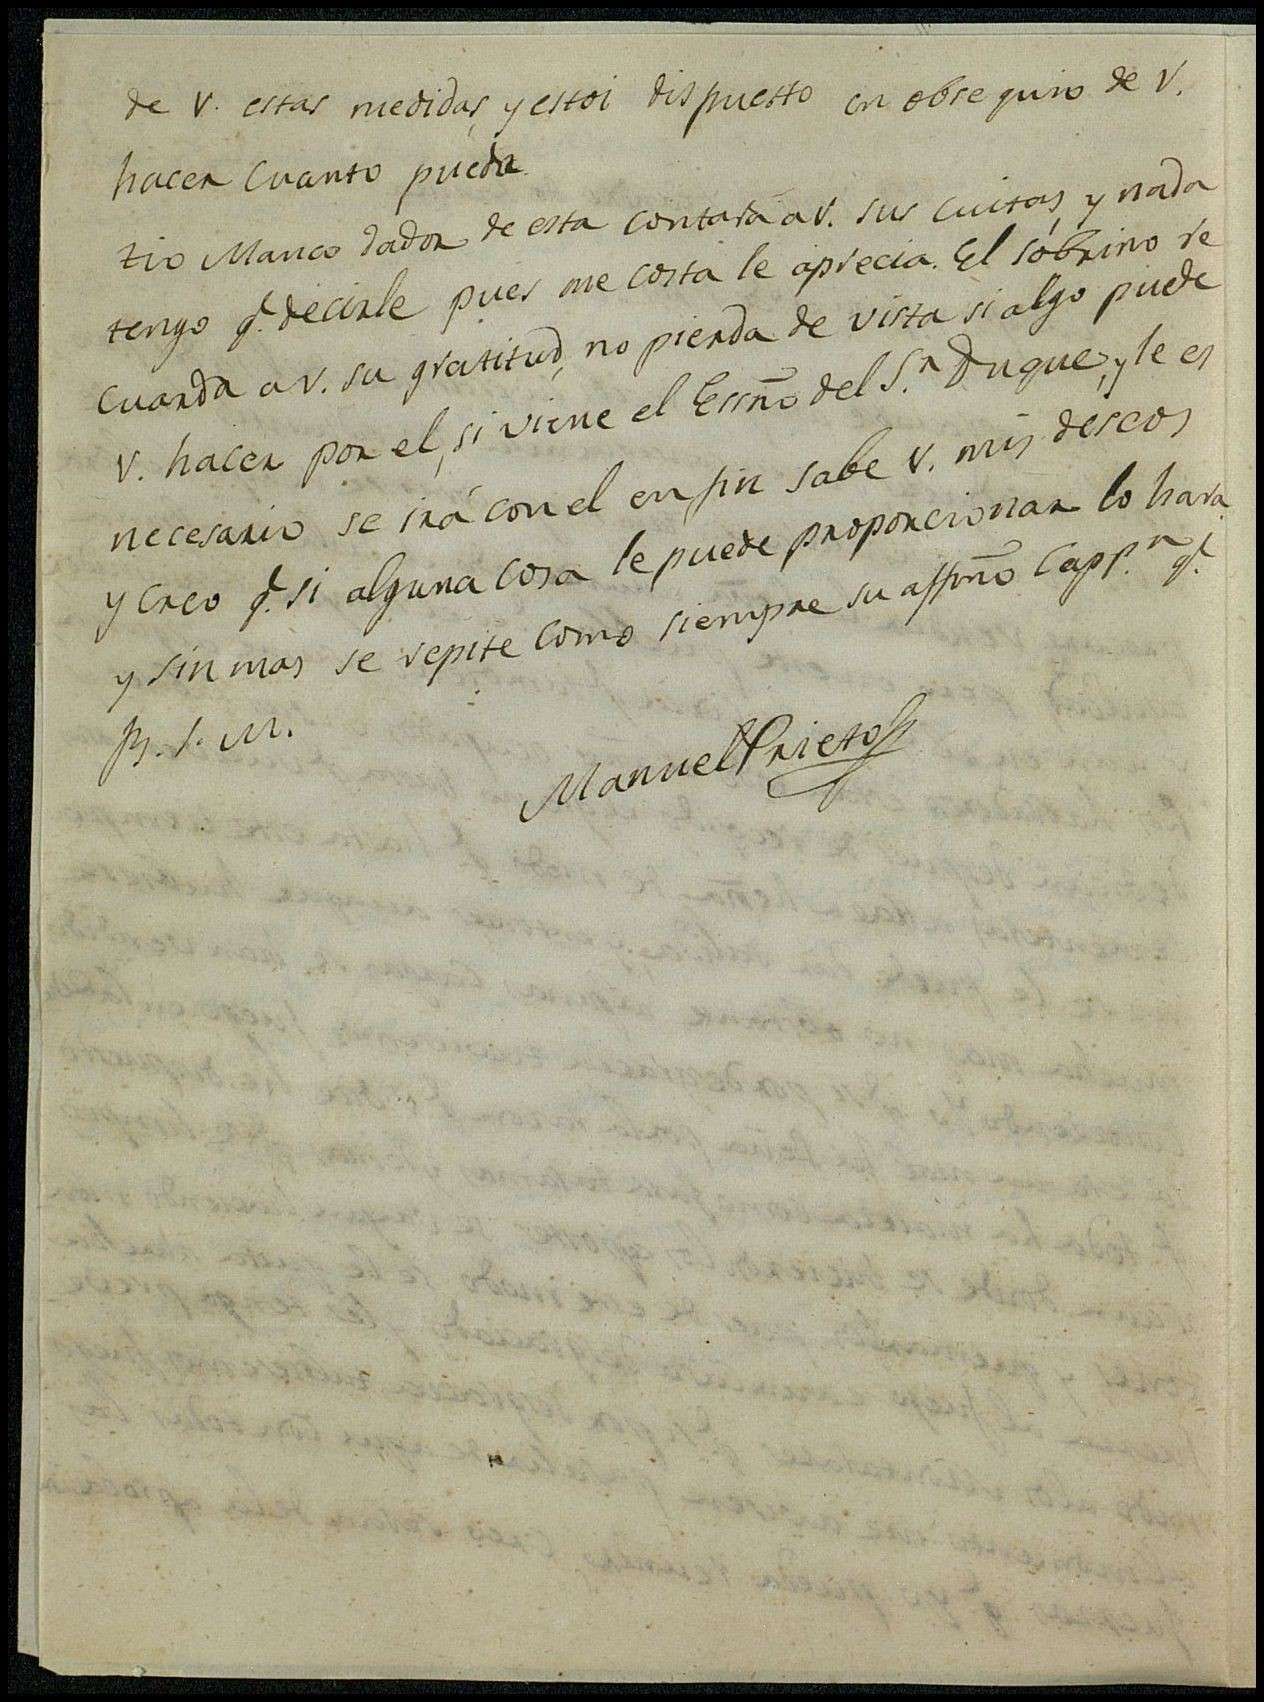 de V. estas medidas, y estoi dispuesto en obsequio de V.
hacer cuanto pueda.
tio Manco dador de esta contara a V. sus cuitas, y nada
tengo q.e decirle pues me costa le aprecia. El sobrino re
cuerda a V. su gratitud, no pierda de vista si algo puede
V. hacer por el, si viene el Essmo del S.r Duque, y le es
necesario se irá con el en fin sabe V. mis deseos
y creo q.e si alguna cosa le puede proporcionar lo hara
y sin mas se repite como siempre su affmo Capp.n q.e
B. S. M.
Manuel Prieto